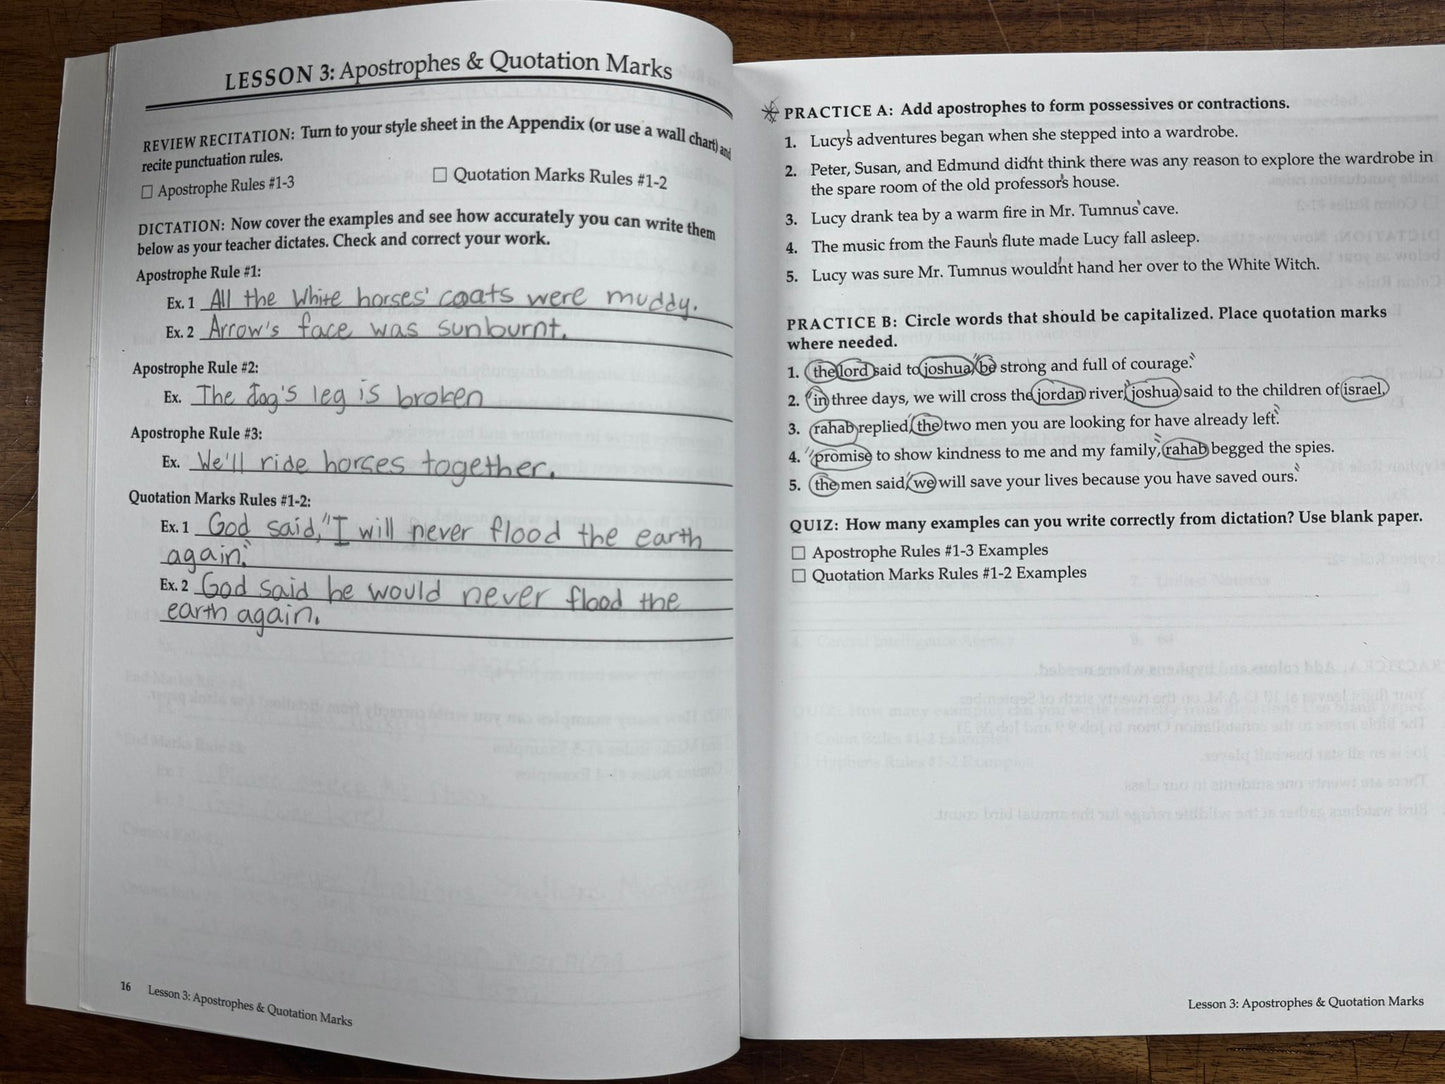 LESSON 3: Apostrophes & Quotation Marks
REVIEW RECITATION: Turn to your style sheet in the Appendix (or use a wall chart) and
recite punctuation rules.
☐ Apostrophe Rules #1-3
☐ Quotation Marks Rules #1-2
DICTATION: Now cover the examples and see how accurately you can write them
below as your teacher dictates. Check and correct your work.
Apostrophe Rule #1:
Ex. 1 All the White horses' coats were muddy.
Ex. 2 Arrow's face was sunburnt.
Apostrophe Rule #2:
Ex. The dog's leg is broken
Apostrophe Rule #3:
Ex. We'll ride horses together.
Quotation Marks Rules #1-2:
Ex. 1 God said, "I will never flood the earth
again."
Ex. 2 God said he would never flood the
earth again.
16 Lesson 3: Apostrophes & Quotation Marks
PRACTICE A: Add apostrophes to form possessives or contractions.
1. Lucy's adventures began when she stepped into a wardrobe.
2. Peter, Susan, and Edmund didn't think there was any reason to explore the wardrobe in
the spare room of the old professor's house.
3. Lucy drank tea by a warm fire in Mr. Tumnus' cave.
4. The music from the Faun's flute made Lucy fall asleep.
5. Lucy was sure Mr. Tumnus wouldn't hand her over to the White Witch.
PRACTICE B: Circle words that should be capitalized. Place quotation marks
where needed.
1. the lord said to joshua, "be strong and full of courage."
2. "in three days, we will cross the jordan river," joshua said to the children of israel.
3. rahab replied, "the two men you are looking for have already left."
4. "promise to show kindness to me and my family," rahab begged the spies.
5. the men said, "we will save your lives because you have saved ours."
QUIZ: How many examples can you write correctly from dictation? Use blank paper.
☐ Apostrophe Rules #1-3 Examples
☐ Quotation Marks Rules #1-2 Examples
Lesson 3: Apostrophes & Quotation Marks